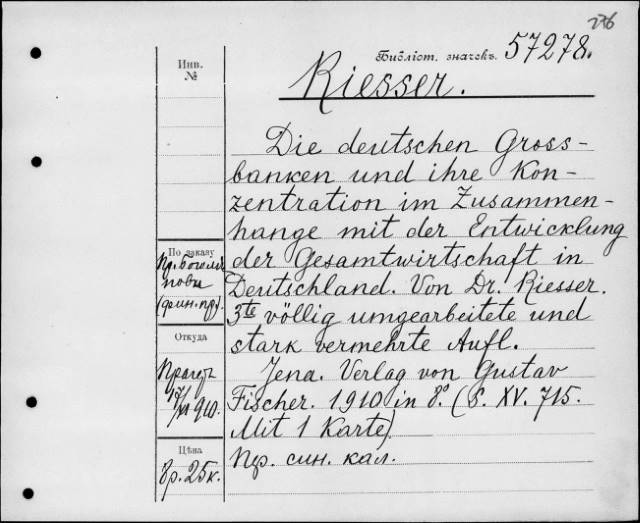 236
Библіот. значекъ. 57278.
Инв.
№
Riesser.
Die deutschen Gross-
banken und ihre Kon-
zentration im Zusammen-
hange mit der Entwicklung
der Gesamtwirtschaft in
Deutschland. Von Dr. Riesser.
3te völlig umgearbeitete und
stark vermehrte Aufl.
Jena. Verlag von Gustav
Fischer. 1910 in 8º. (S. XV. 715.
Mit 1 Karte).
Пр. син. кал.
По заказу
Пр. Боголѣ
пова
(фин. пр).
Откуда
Прагеръ
1910.
Цѣна
р. 25к.